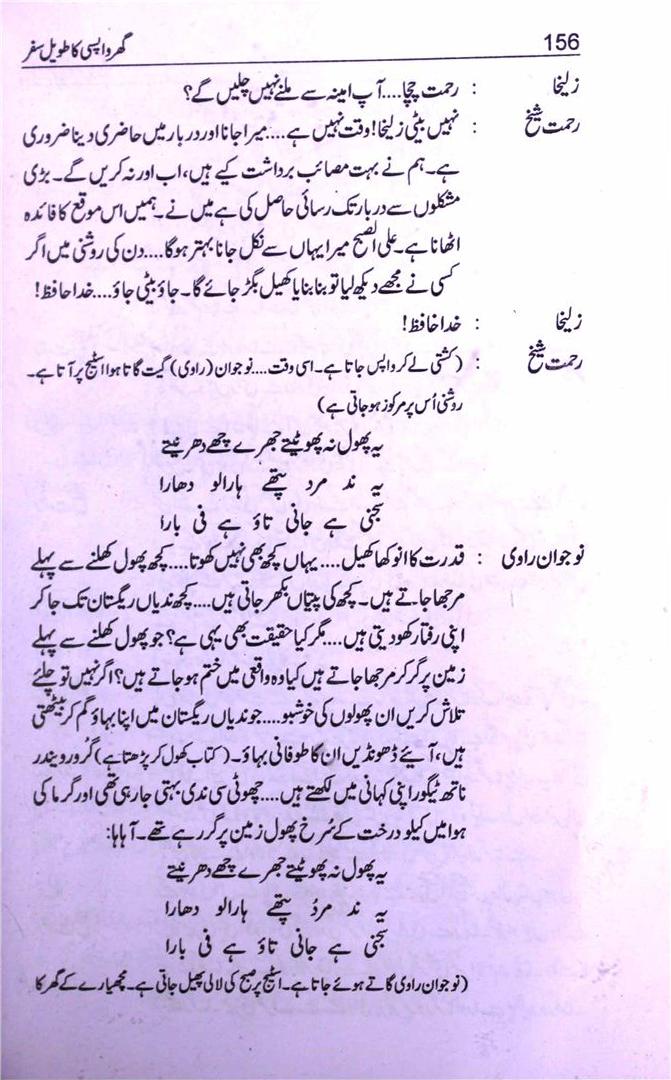 156
گھر واپسی کا طویل سفر
زلیخا : رحمت چچا....آپ امینہ سے ملنے نہیں چلیں گے؟
رحمت شیخ : نہیں بیٹی زلیخا! وقت نہیں ہے....میرا جانا اور دربار میں حاضری دینا ضروری
ہے۔ہم نے بہت مصائب برداشت کیے ہیں، اب اور نہ کریں گے۔ بڑی
مشکلوں سے دربار تک رسائی حاصل کی ہے میں نے۔ہمیں اس موقع کا فائدہ
اٹھانا ہے۔علی الصبح میرا یہاں سے نکل جانا بہتر ہوگا....دن کی روشنی میں اگر
کسی نے مجھے دیکھ لیا تو بنا بنایا کھیل بگڑ جائے گا۔ جاؤ بیٹی جاؤ....خدا حافظ!
زلیخا : خدا حافظ!
رحمت شیخ : (کشتی لے کر واپس جاتا ہے۔ اسی وقت....نوجوان (راوی) گیت گاتا ہوا اسٹیج پر آتا ہے۔
روشنی اُس پر مرکوز ہو جاتی ہے)
یہ پھول نہ پھوٹیتے جھرے چھے دھرنیتے
یہ ند مرد پتھے ہارالو دھارا
بجنی ہے جانی تاؤ ہے فی ہارا
نوجوان راوی : قدرت کا انوکھا کھیل....یہاں کچھ بھی نہیں کھوتا....کچھ پھول کھلنے سے پہلے
مرجھا جاتے ہیں۔ کچھ کی پتیاں بکھر جاتی ہیں....کچھ ندیاں ریگستان تک جا کر
اپنی رفتار کھو دیتی ہیں....مگر کیا حقیقت بھی یہی ہے؟ جو پھول کھلنے سے پہلے
زمین پر گر کر مرجھا جاتے ہیں کیا وہ واقعی میں ختم ہو جاتے ہیں؟ اگر نہیں تو چلئے
تلاش کریں ان پھولوں کی خوشبو....جو ندیاں ریگستان میں اپنا بہاؤ گم کر بیٹھتی
ہیں، آیئے ڈھونڈیں ان کا طوفانی بہاؤ۔ (کتاب کھول کر پڑھتا ہے) گُرو رویندر
ناتھ ٹیگور اپنی کہانی میں لکھتے ہیں....چھوٹی سی ندی بہتی جا رہی تھی اور گرما کی
ہوا میں کیلو درخت کے سُرخ پھول زمین پر گر رہے تھے۔ آہاہا:
یہ پھول نہ پھوٹیتے جھرے چھے دھرنیتے
یہ ند مردُ پتھے ہارالو دھارا
بجنی ہے جانی تاؤ ہے فی ہارا
(نوجوان راوی گاتے ہوئے جاتا ہے۔ اسٹیج پر صبح کی لالی پھیل جاتی ہے۔ مچھیارے کے گھر کا